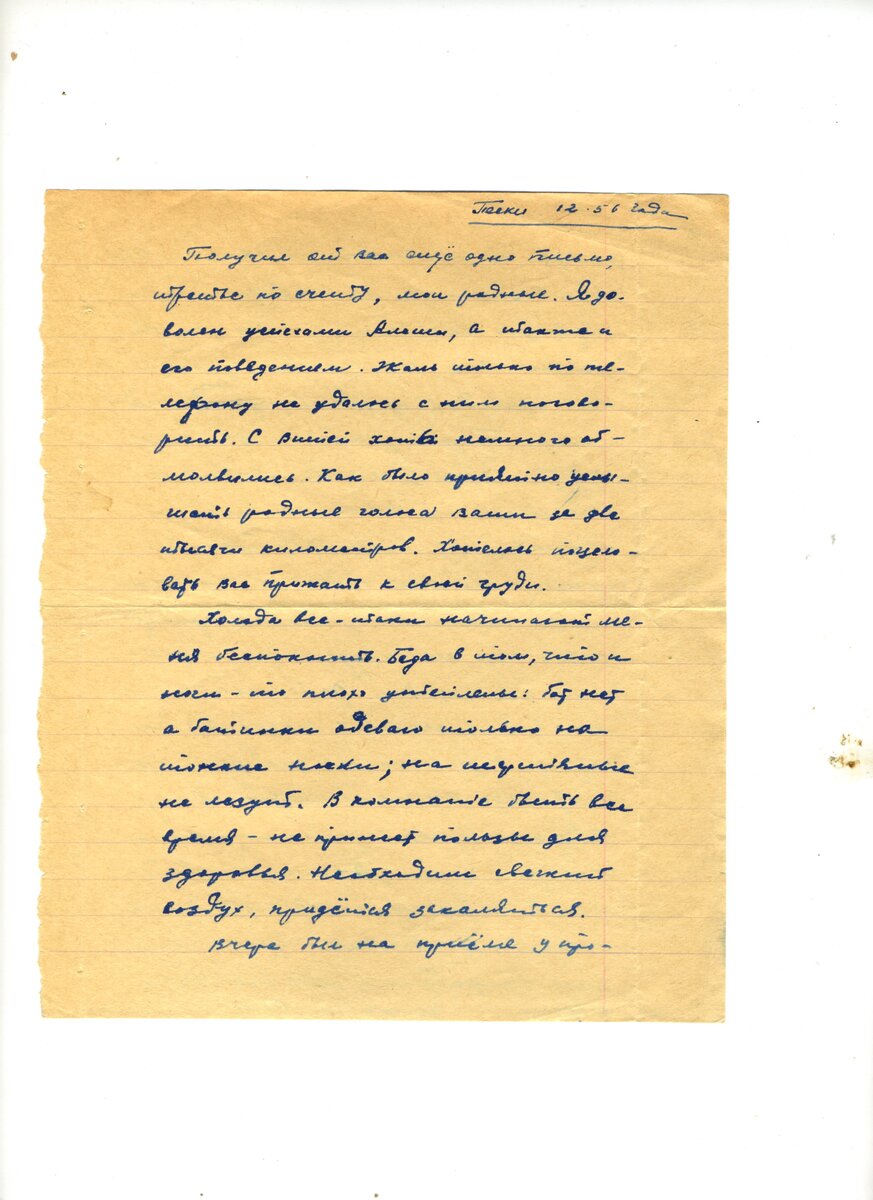 Пески 12.56 года
Получил от вас ещё одно письмо,
третье по счету, мои родные. Я до-
волен успехами Алеши, а также и
его поведением. Жаль только по те-
лефону не удалось с ним погово-
рить. С Витей хотя немного об-
молвились. Как было приятно услы-
шать родные голоса ваши за две
тысячи километров. Хотелось поцело-
вать вас прижать к своей груди.
Холода все-таки начинают ме-
ня беспокоить. Беда в том, что и
ноги-то плохо утеплены: бот нет
а ботинки одеваю только на
тонкие носки; на шерстяные
не лезут. В комнате быть все
время - не принесет пользы для
здоровья. Необходим свежий
воздух, придётся закаляться.
Вчера был на приёме у про-